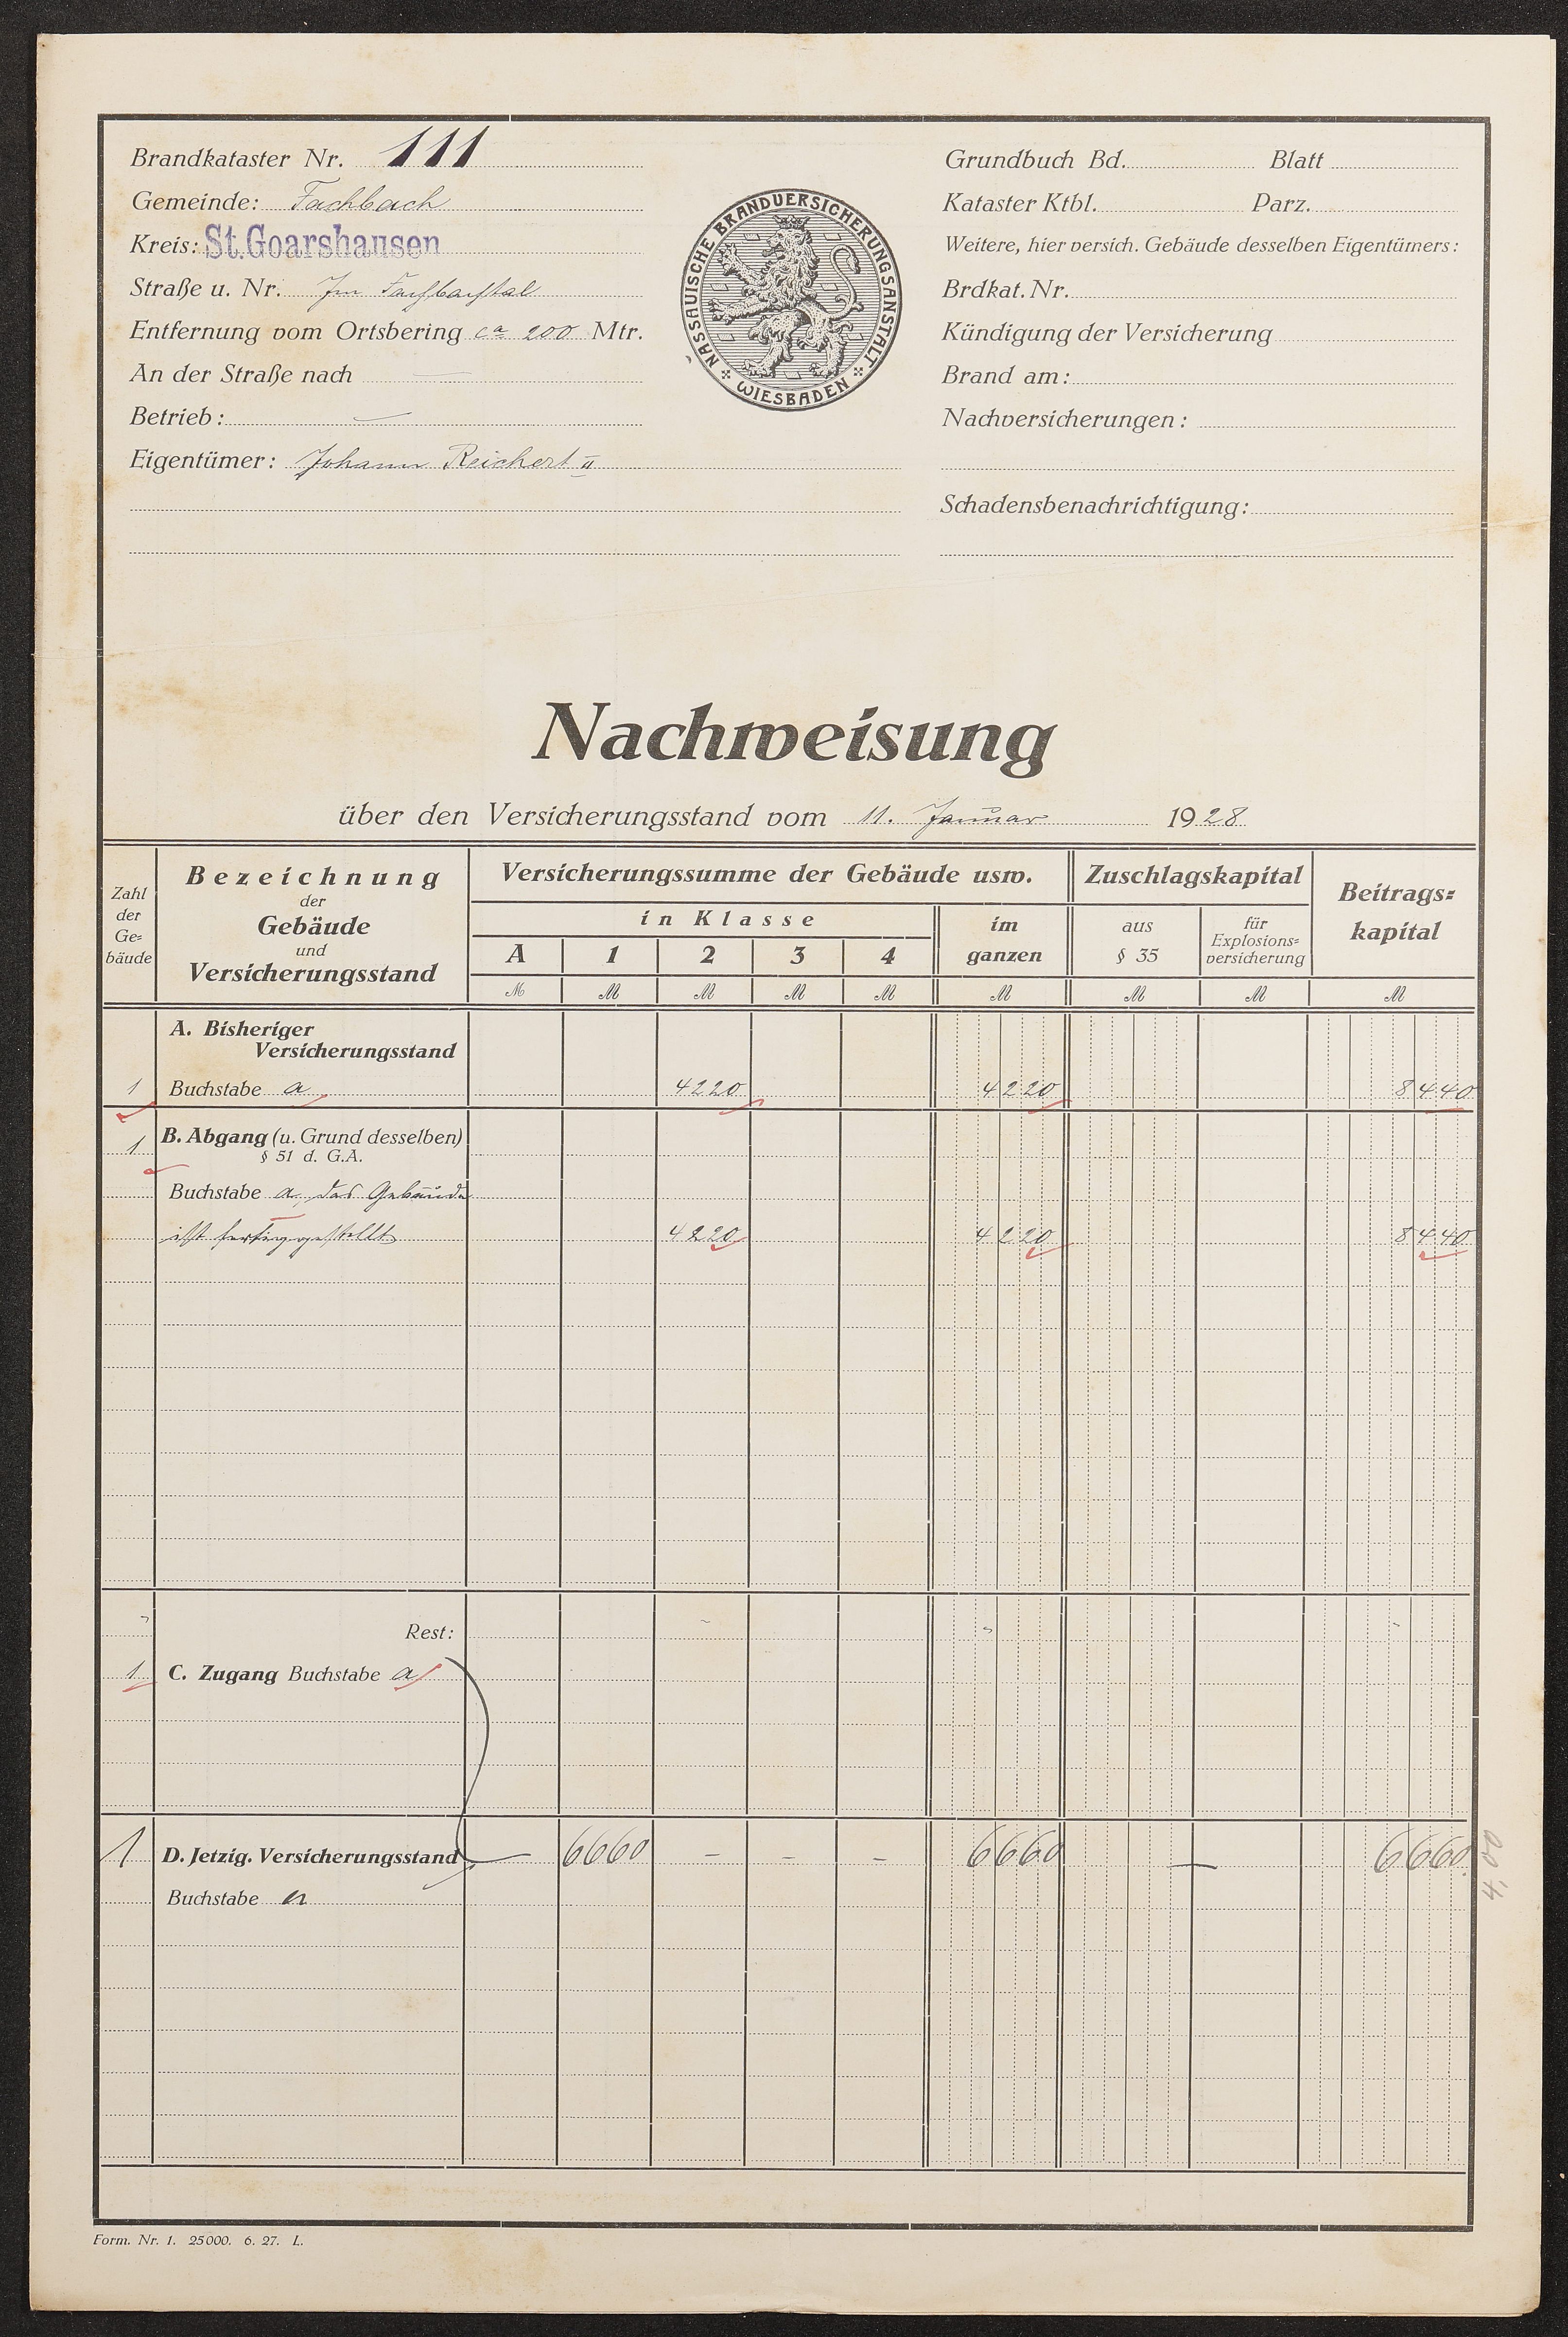 Brandkataster Nr. 111
Gemeinde: Fachbach
Kreis: St. Goarshausen
Straße u. Nr. Im Fachbachtal
Entfernung vom Ortsbering ca 200 Mtr.
An der Straße nach —
Betrieb: —
Eigentümer: Johann Reichert II
NASSAUISCHE BRANDVERSICHERUNGSANSTALT
WIESBADEN
Grundbuch Bd. Blatt
Kataster Ktbl. Parz.
Weitere, hier versich. Gebäude desselben Eigentümers:
Brdkat. Nr.
Kündigung der Versicherung
Brand am:
Nachversicherungen:
Schadensbenachrichtigung:
Nachweisung
über den Versicherungsstand vom 11. Januar 1928
Zahl der Ge= bäude
Bezeichnung
der
Gebäude
und
Versicherungsstand
Versicherungssumme der Gebäude usw.
in Klasse
A 1 2 3 4
im ganzen
Zuschlagskapital
aus § 35
für Explosions= versicherung
Beitrags= kapital
M M M M M M M M M
A. Bisheriger
Versicherungsstand
1 Buchstabe a 4220 4220 8440
1 B. Abgang (u. Grund desselben)
§ 51 d. G.A.
Buchstabe a, das Gebäude
ist fertiggestellt 4220 4220 8440
Rest: - - -
1 C. Zugang Buchstabe a
1 D. Jetzig. Versicherungsstand — 6660 – – – 6660 — 6660
Buchstabe a
4,00
Form. Nr. 1. 25000. 6. 27. L.